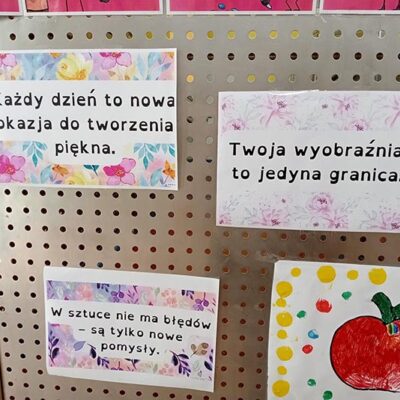 Każdy dzień to nowa
okazja do tworzenia
piękna.
Twoja wyobraźnia
to jedyna granica.
W sztuce nie ma błędów
– są tylko nowe
pomysły.